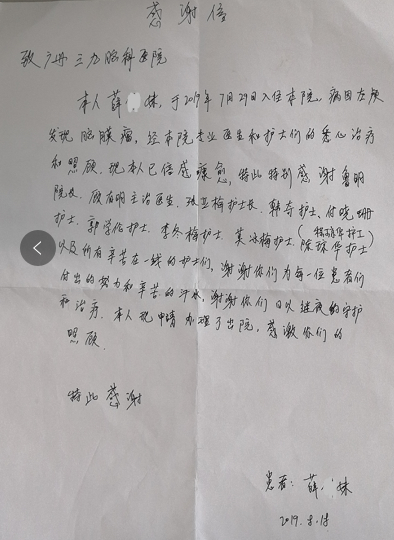 感谢信
致广州三九脑科医院
本人薛 妹,于2019年7月29日入住本院,病因左额
发现脑膜瘤,经本院专业医生和护士们的悉心治疗
和照顾,现本人已倍感痊愈,特此特别感谢鲁明
院长、顾有明主治医生、张亚梅护士长、韩奇护士、付晓珊
护士、郭学伦护士、李冬梅护士、莫冰梅护士、陈琼华护士
以及所有辛苦在一线的护士们,谢谢你们为每一位患者们
付出的努力和辛苦的汗水,谢谢你们日以继夜的守护
和治疗。本人现申请办理了出院,感激你们的
照顾。
特此感谢
患者:薛 妹
2019.8.18